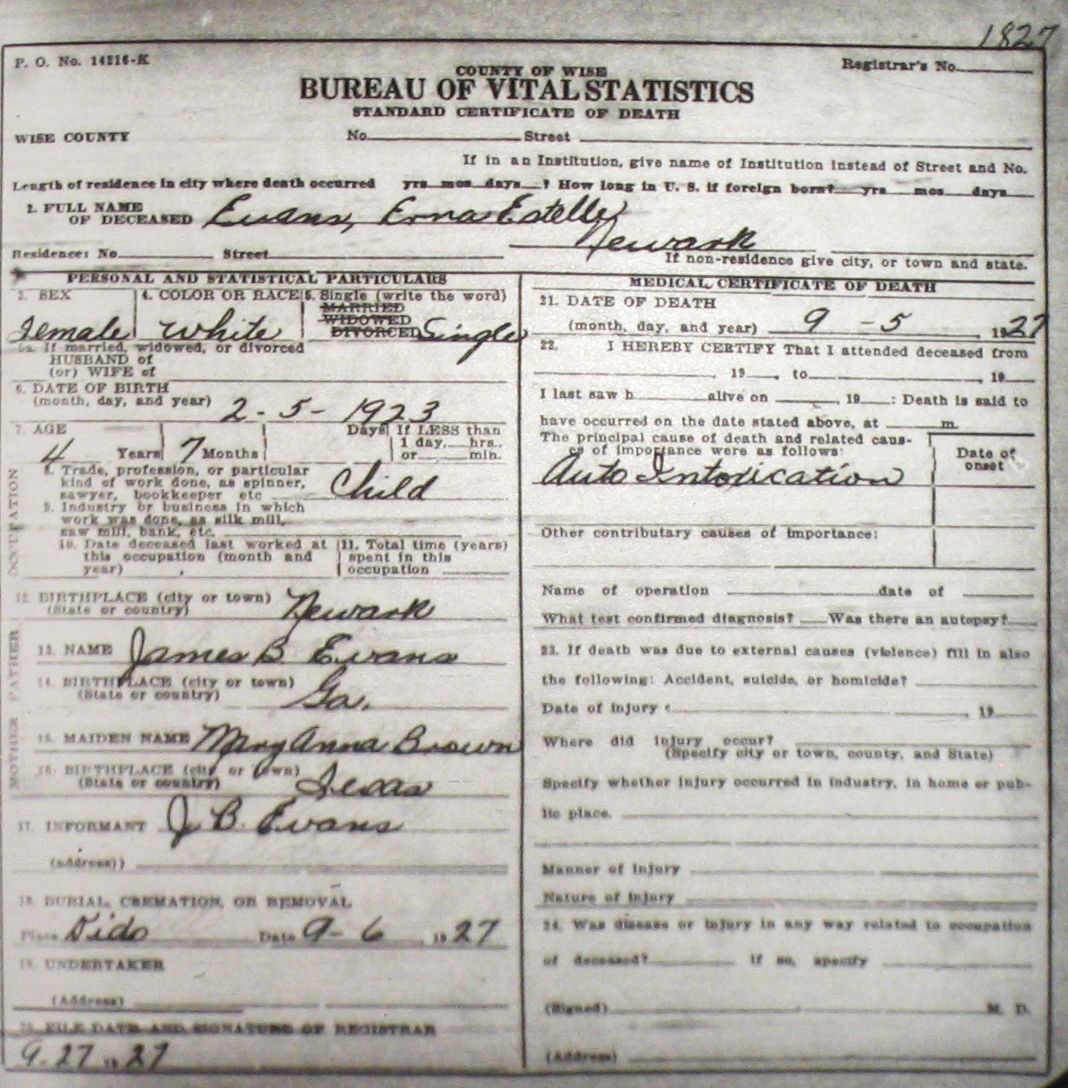 1827
P. O. No. 14216-K
Registrar's No.
COUNTY OF WISE
BUREAU OF VITAL STATISTICS
STANDARD CERTIFICATE OF DEATH
WISE COUNTY No. Street
If in an Institution, give name of Institution instead of Street and No.
Length of residence in city where death occurred yrs mos days ? How long in U. S. if foreign born? yrs mos days
2. FULL NAME
OF DECEASED Evans, Erna Estelle
Newark
Residence: No Street
If non-residence give city, or town and state.
PERSONAL AND STATISTICAL PARTICULARS
3. SEX 4. COLOR OR RACE 5. Single (write the word)
MARRIED
WIDOWED
DIVORCED
Female White Single
5a. If married, widowed, or divorced
HUSBAND of
(or) WIFE of
6. DATE OF BIRTH
(month, day, and year) 2-5-1923
7. AGE Days If LESS than
1 day, hrs.
4 Years 7 Months or min.
OCCUPATION
8. Trade, profession, or particular
kind of work done, as spinner,
sawyer, bookkeeper etc Child
9. Industry or business in which
work was done, as silk mill,
saw mill, bank, etc.
10. Date deceased last worked at
this occupation (month and
year)
11. Total time (years)
spent in this
occupation
12. BIRTHPLACE (city or town)
(State or country) Newark
FATHER
13. NAME James B Evans
14. BIRTHPLACE (city or town)
(State or country) Ga.
MOTHER
15. MAIDEN NAME Mary Anna Brown
16. BIRTHPLACE (city or town)
(State or country) Texas
17. INFORMANT J B. Evans
(address)
18. BURIAL, CREMATION, OR REMOVAL
Place Dido Date 9-6 1927
19. UNDERTAKER
(Address)
20. FILE DATE AND SIGNATURE OF REGISTRAR
9-27 1927
MEDICAL CERTIFICATE OF DEATH
21. DATE OF DEATH
(month, day, and year) 9-5 1927
22. I HEREBY CERTIFY That I attended deceased from
, 19 , to , 19
I last saw h alive on , 19 : Death is said to
have occurred on the date stated above, at m.
The principal cause of death and related caus-
es of importance were as follows:
Date of
onset
Auto Intoxication
Other contributory causes of importance:
Name of operation date of
What test confirmed diagnosis? Was there an autopsy?
23. If death was due to external causes (violence) fill in also
the following: Accident, suicide, or homicide?
Date of injury , 19
Where did injury occur?
(Specify city or town, county, and State)
Specify whether injury occurred in industry, in home or pub-
lic place.
Manner of injury
Nature of injury
24. Was disease or injury in any way related to occupation
of deceased? If so, specify
(Signed) M. D.
(Address)